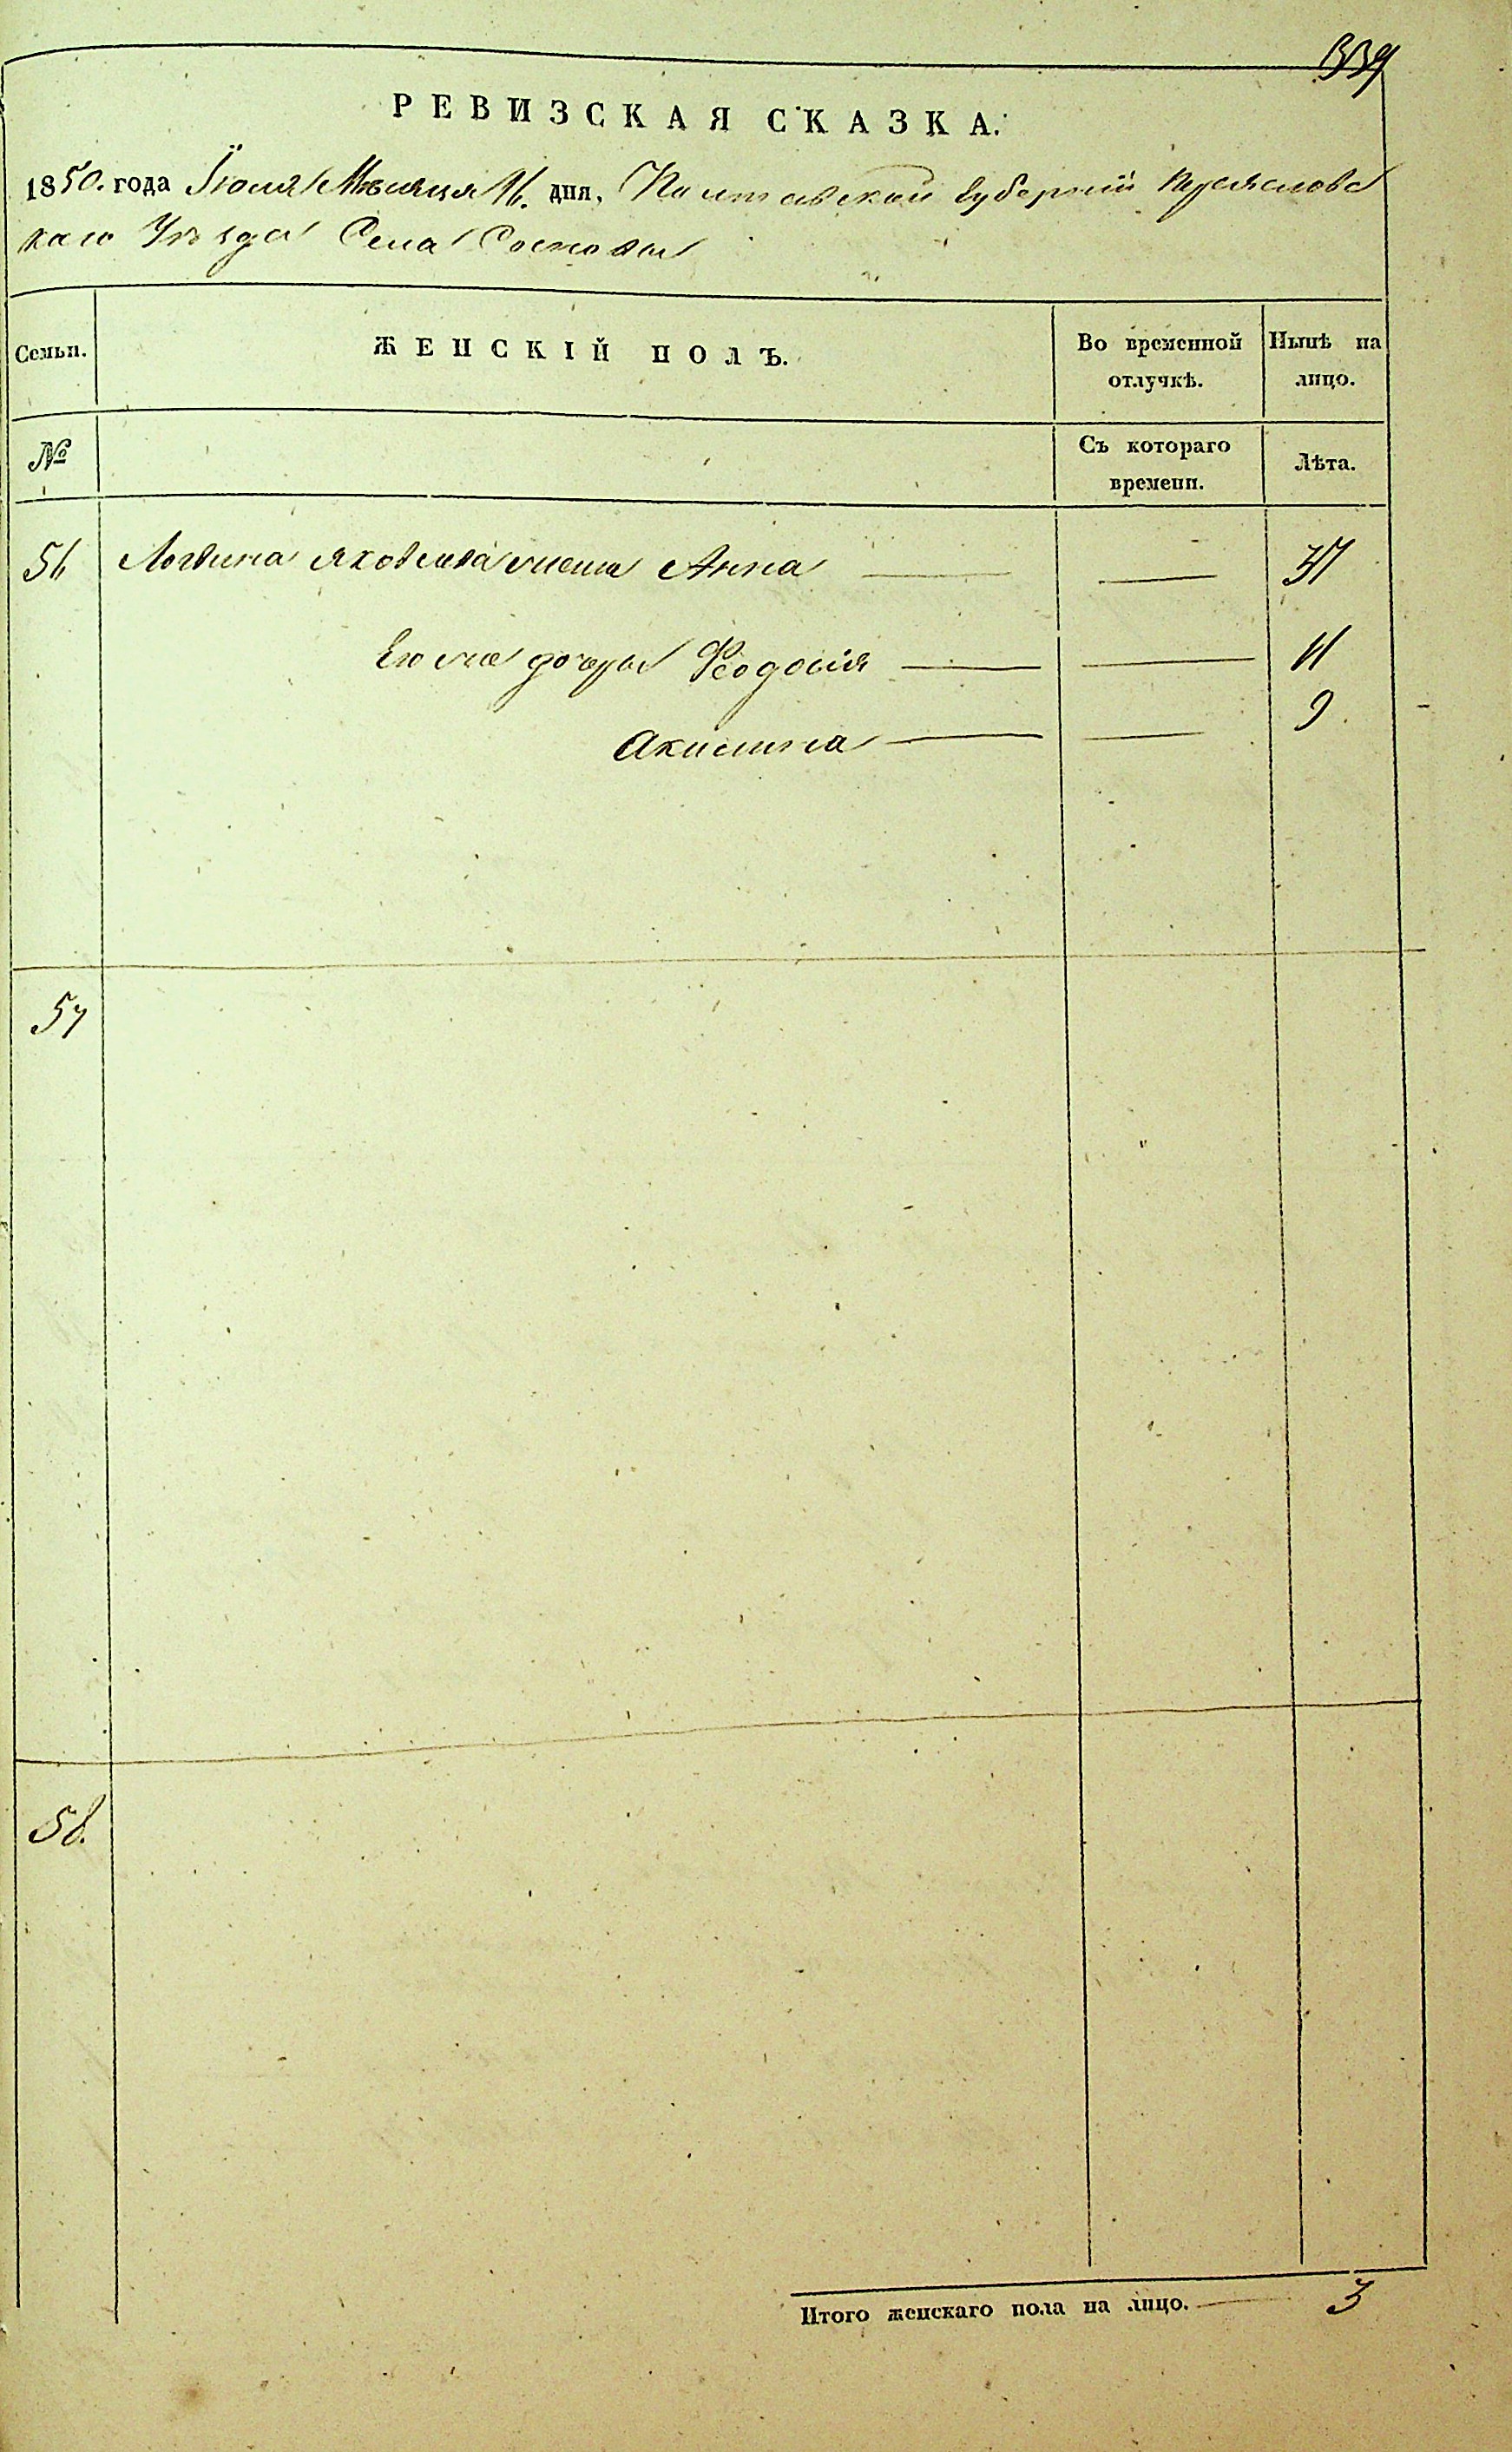 339
РЕВИЗСКАЯ СКАЗКА.
1850. года Іюля Мѣсяца 16. дня, Полтавской Губерніи Переяславс
каго Уѣзда Села Сосновы
Семьи. ЖЕНСКІЙ ПОЛЪ. Во временной отлучкѣ. Нынѣ на лицо.
№ Съ котораго времени. Лѣта.
56 Логвина Яковлева жена Анна — — 37
Его же дочеры Феодосія — — 11
Акилина — — 9
57
58.
Итого женскаго пола на лицо. — 3